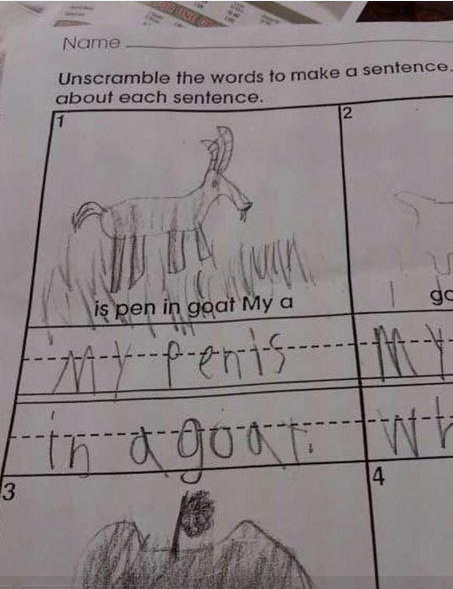 Name
Unscramble the words to make a sentence.
about each sentence.
1
2
is pen in goat My a
My penis
My
in a goat.
3
4